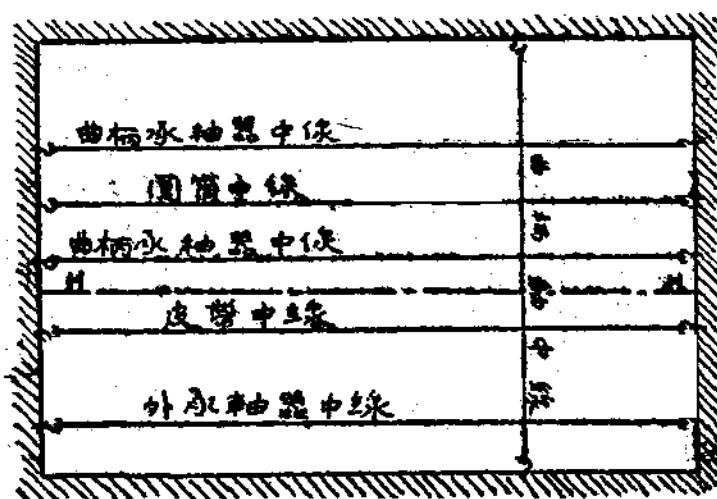 曲柄承軸器中線
圓筒中線
曲柄承軸器中線
H H
皮帶中線
外承軸器中線
曲柄軸中線